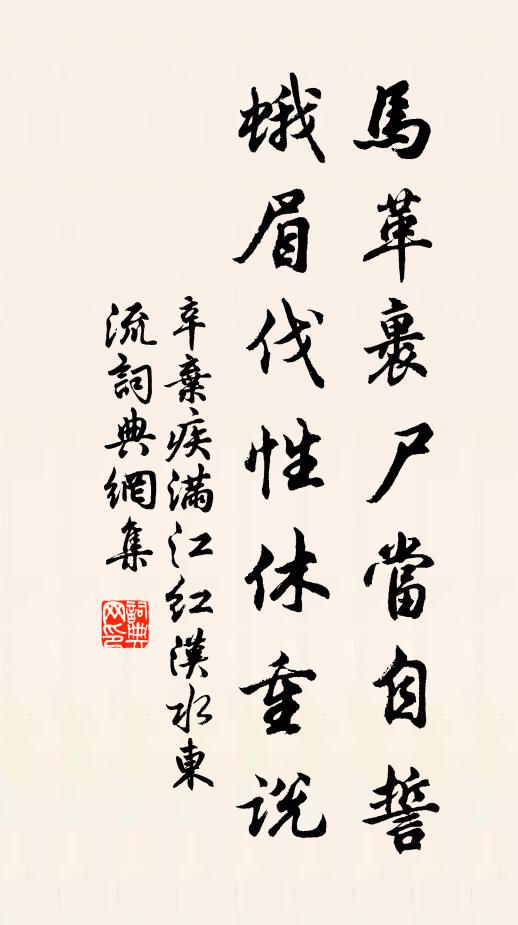 馬革裹尸當自誓
蛾眉伐性休重説
辛棄疾滿江红漢水東
流詞典網集
詞典
网印